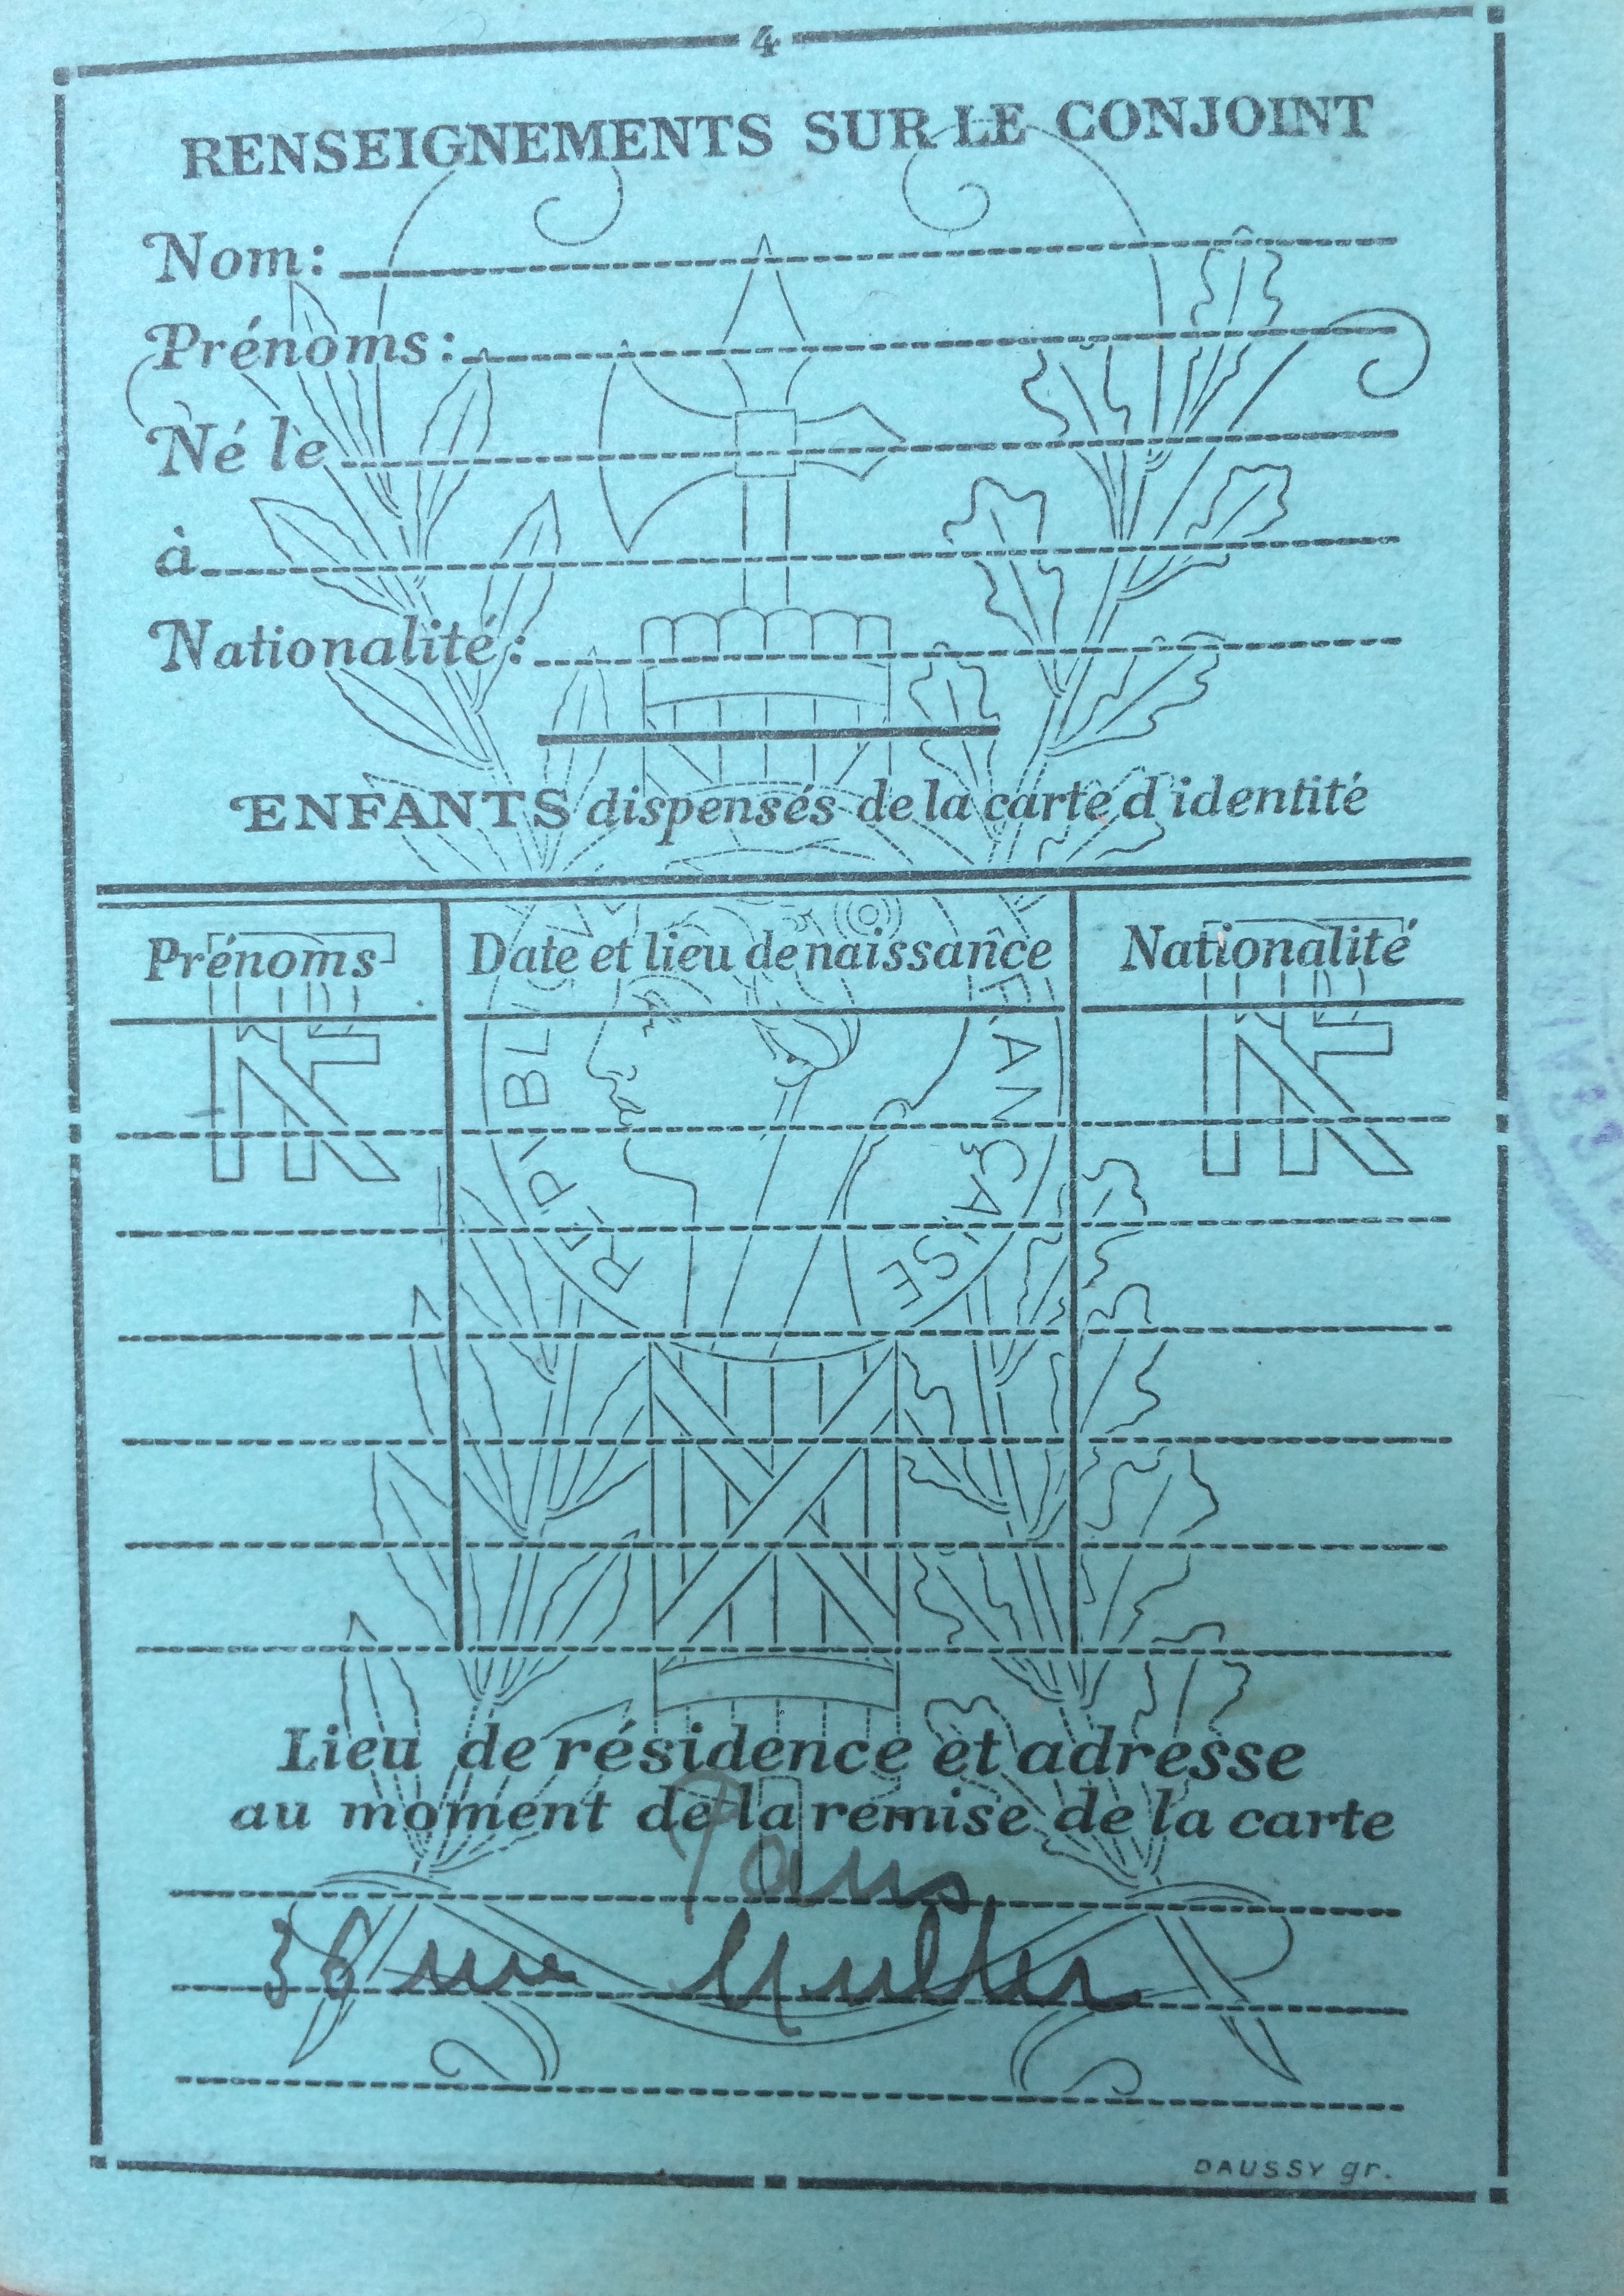 4
RENSEIGNEMENTS SUR LE CONJOINT
Nom:
Prénoms:
Né le
à
Nationalité:
ENFANTS dispensés de la carte d'identité
Prénoms Date et lieu de naissance Nationalité
RF RÉPUBLIQUE FRANÇAISE RF
Lieu de résidence et adresse
au moment de la remise de la carte
Paris
36 rue Muller
DAUSSY gr.